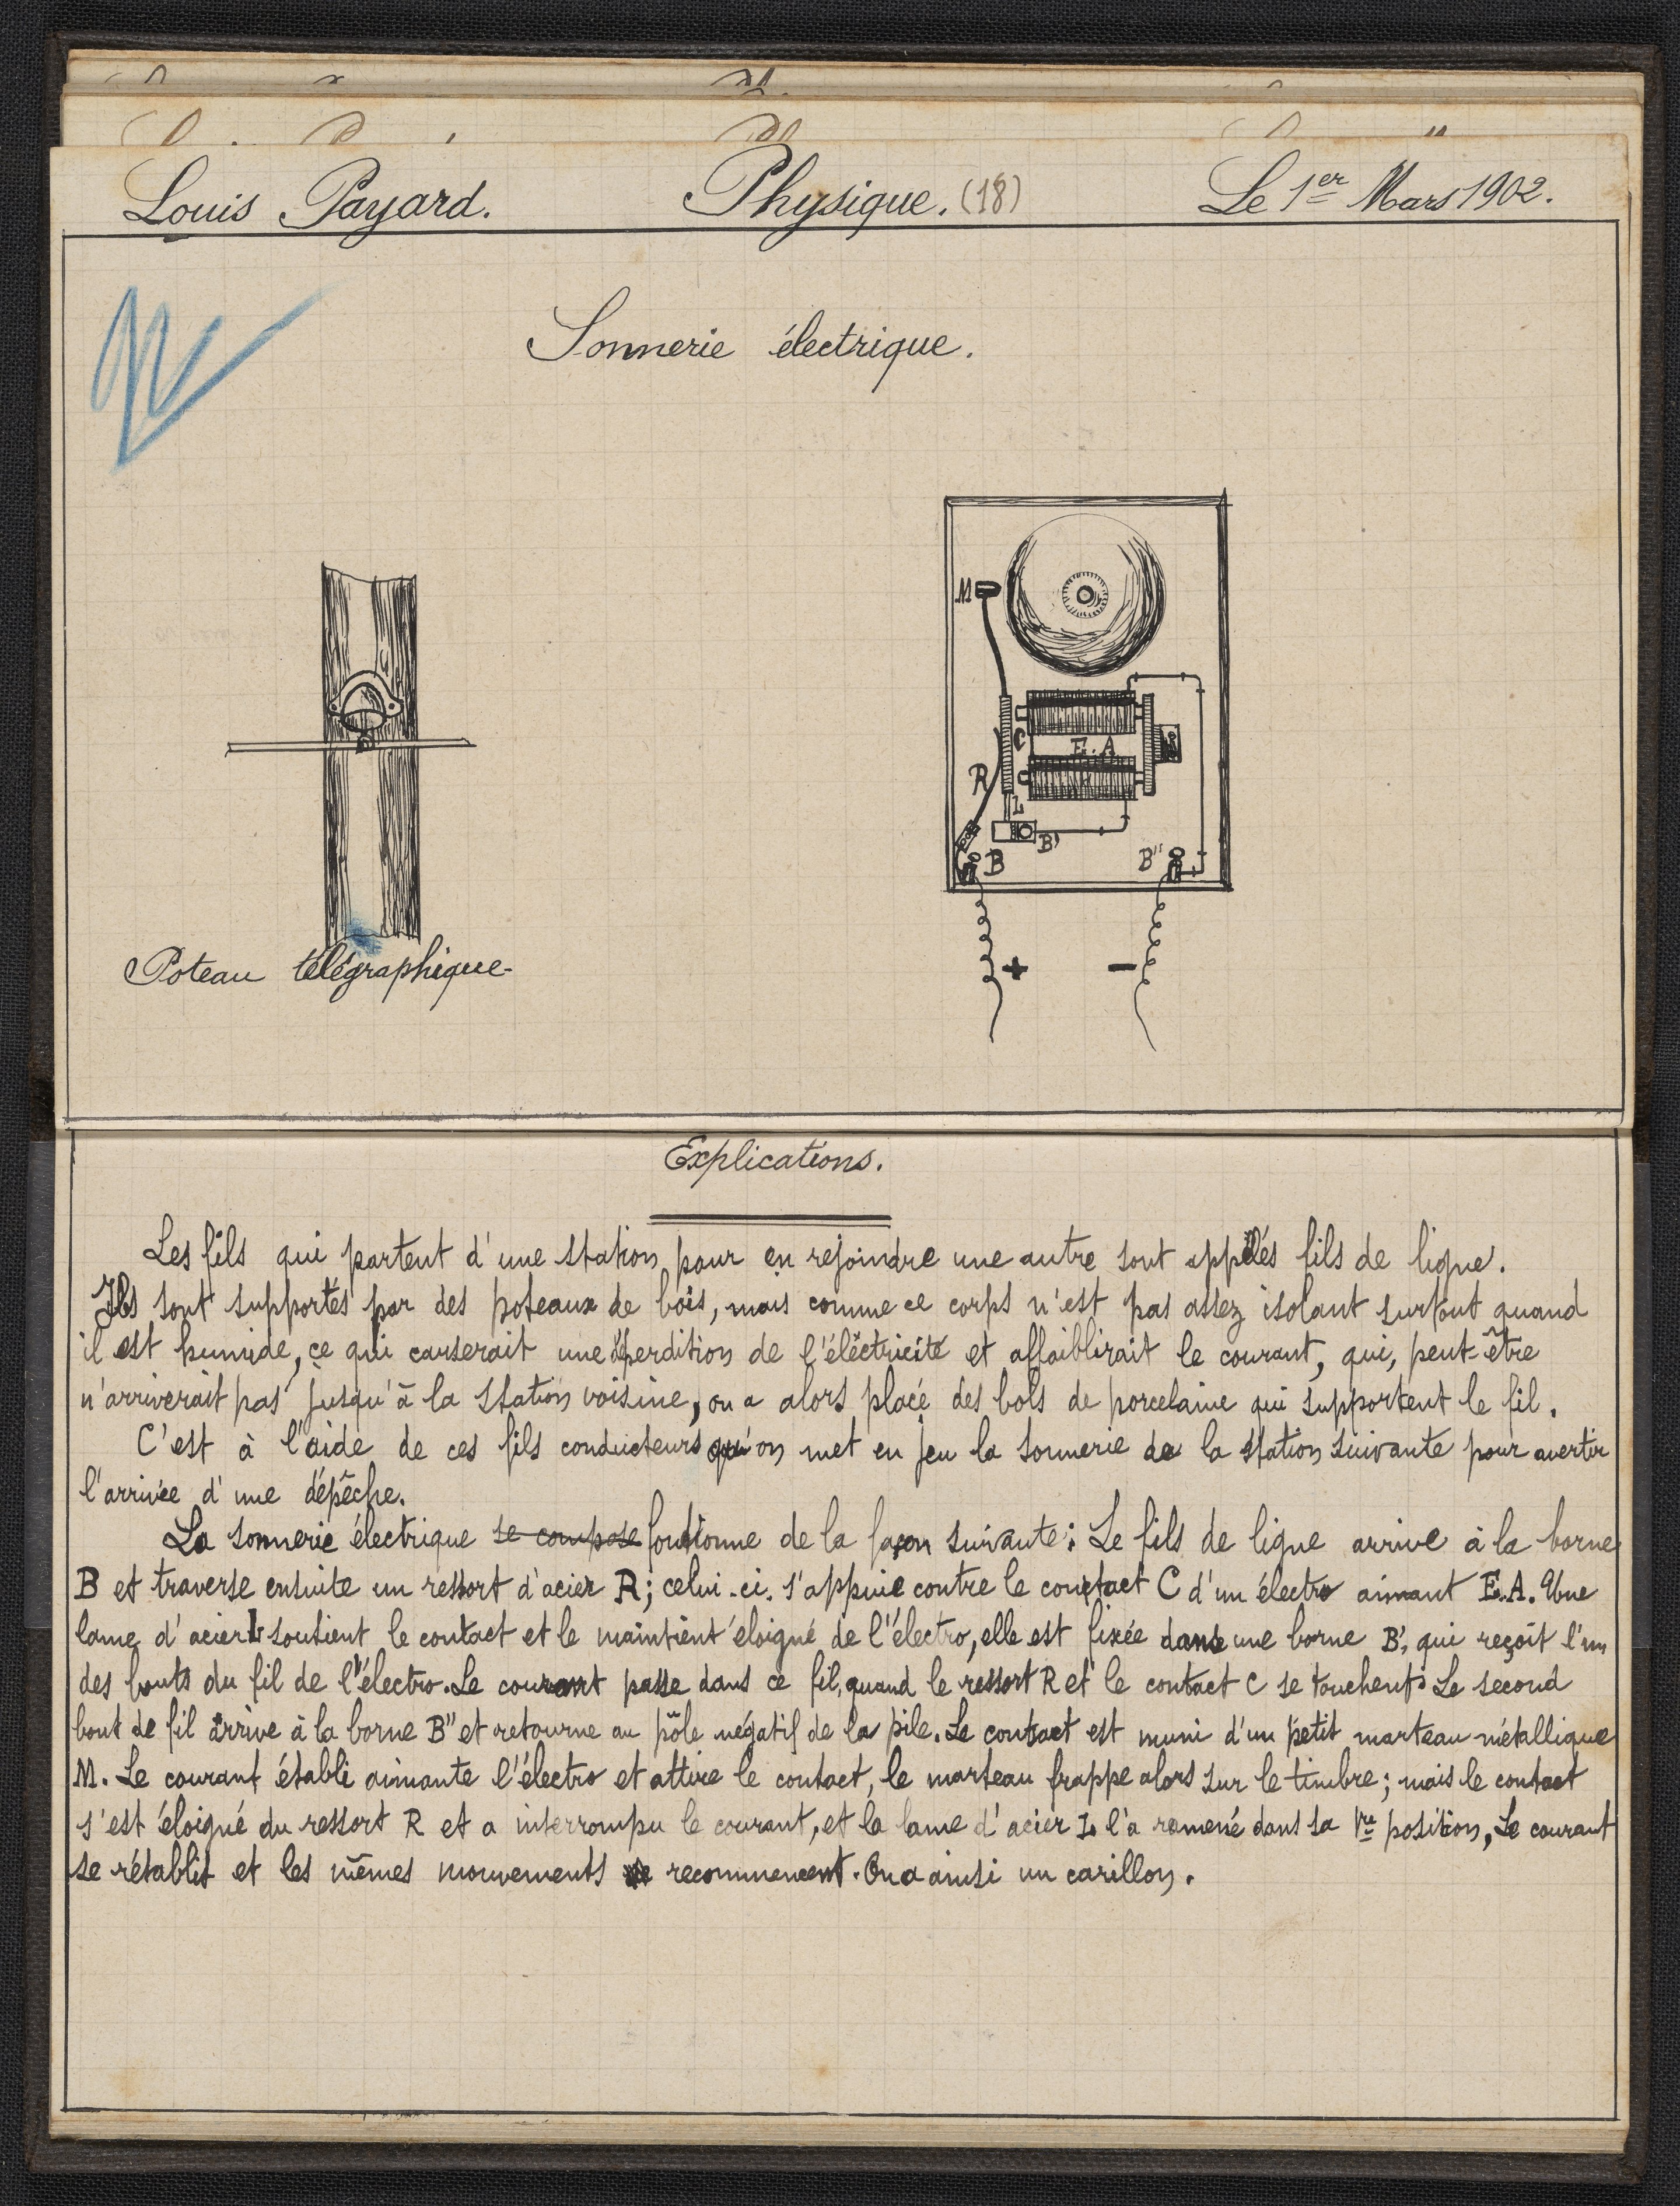 Louis Payard. Physique. (18) Le 1er Mars 1902.
Sonnerie électrique.
M
C
E.A
R
L
B'
B B"
+ -
Poteau télégraphique
Explications.
Les fils qui partent d'une station pour en rejoindre une autre sont appelés fils de ligne.
Ils sont supportés par des poteaux de bois, mais comme ce corps n'est pas assez isolant surtout quand
il est humide, ce qui causerait une déperdition de l'éléctricité et affaiblirait le courant, qui, peut-être
n'arriverait pas jusqu'à la station voisine, on a alors placé des bols de porcelaine qui supportent le fil.
C'est à l'aide de ces fils conducteurs qu'on met en jeu la sonnerie de la station suivante pour avertir
l'arrivée d'une dépêche.
La sonnerie électrique se compose fonctionne de la façon suivante: Le fils de ligne arrive à la borne
B et traverse ensuite un ressort d'acier R; celui-ci s'appuie contre le contact C d'un électro aimant E.A. Une
lame d'acier L soutient le contact et le maintient éloigné de l'électro, elle est fixée dans une borne B', qui reçoit l'un
des bouts du fil de l'électro. Le courant passe dans ce fil, quand le ressort R et le contact C se touchent. Le second
bout de fil arrive à la borne B" et retourne au pôle négatif de la pile. Le contact est muni d'un petit marteau métallique
M. Le courant établi aimante l'électro et attire le contact, le marteau frappe alors sur le timbre; mais le contact
s'est éloigné du ressort R et a interrompu le courant, et la lame d'acier L l'a ramené dans sa 1re position, Le courant
se rétablit et les mêmes mouvements recommencent. On a ainsi un carillon.